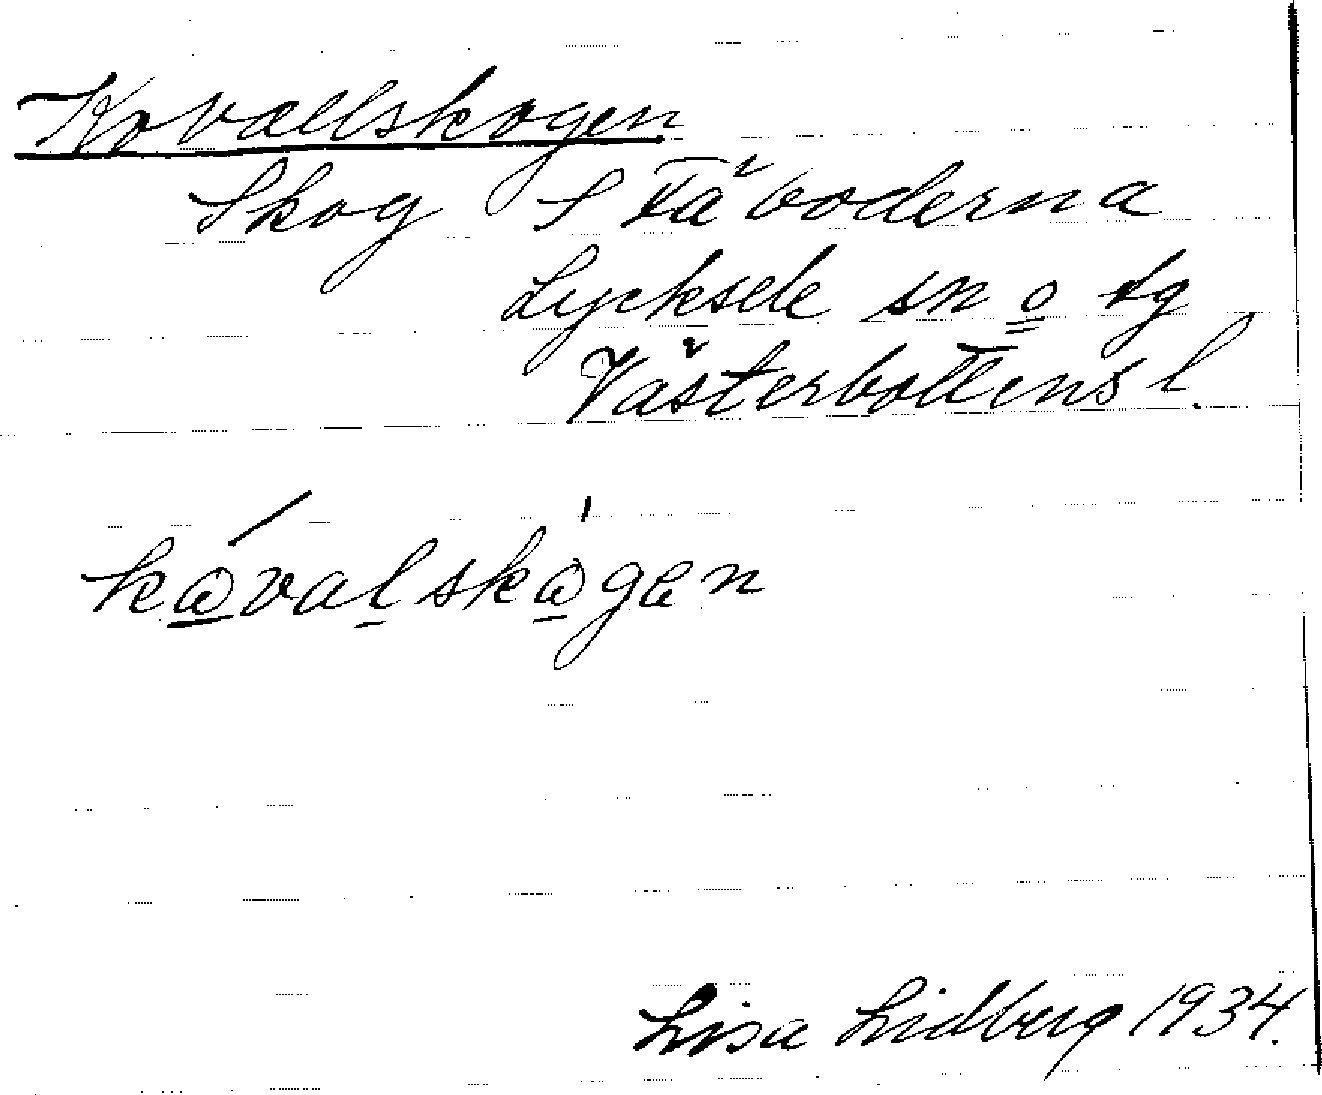 Kovallskogen
Skog S Täboderna
Lycksele sn o tg
Västerbottens l.
kåvalskågen
Lisa Lidberg 1934.